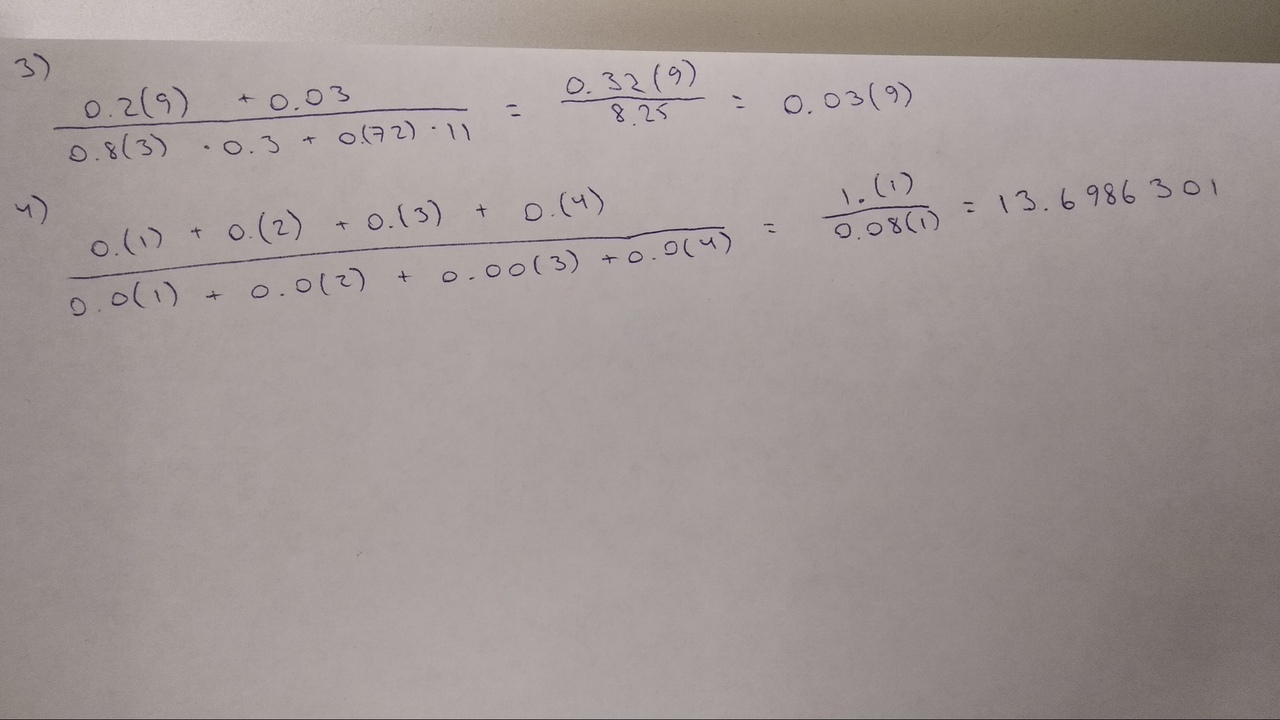 3)
0.2(9) + 0.03
0.8(3) · 0.3 + 0.(72) · 11
=
0.32(9)
8.25
= 0.03(9)
4)
0.(1) + 0.(2) + 0.(3) + 0.(4)
0.0(1) + 0.0(2) + 0.00(3) + 0.0(4)
=
1.(1)
0.08(1)
= 13.6986301